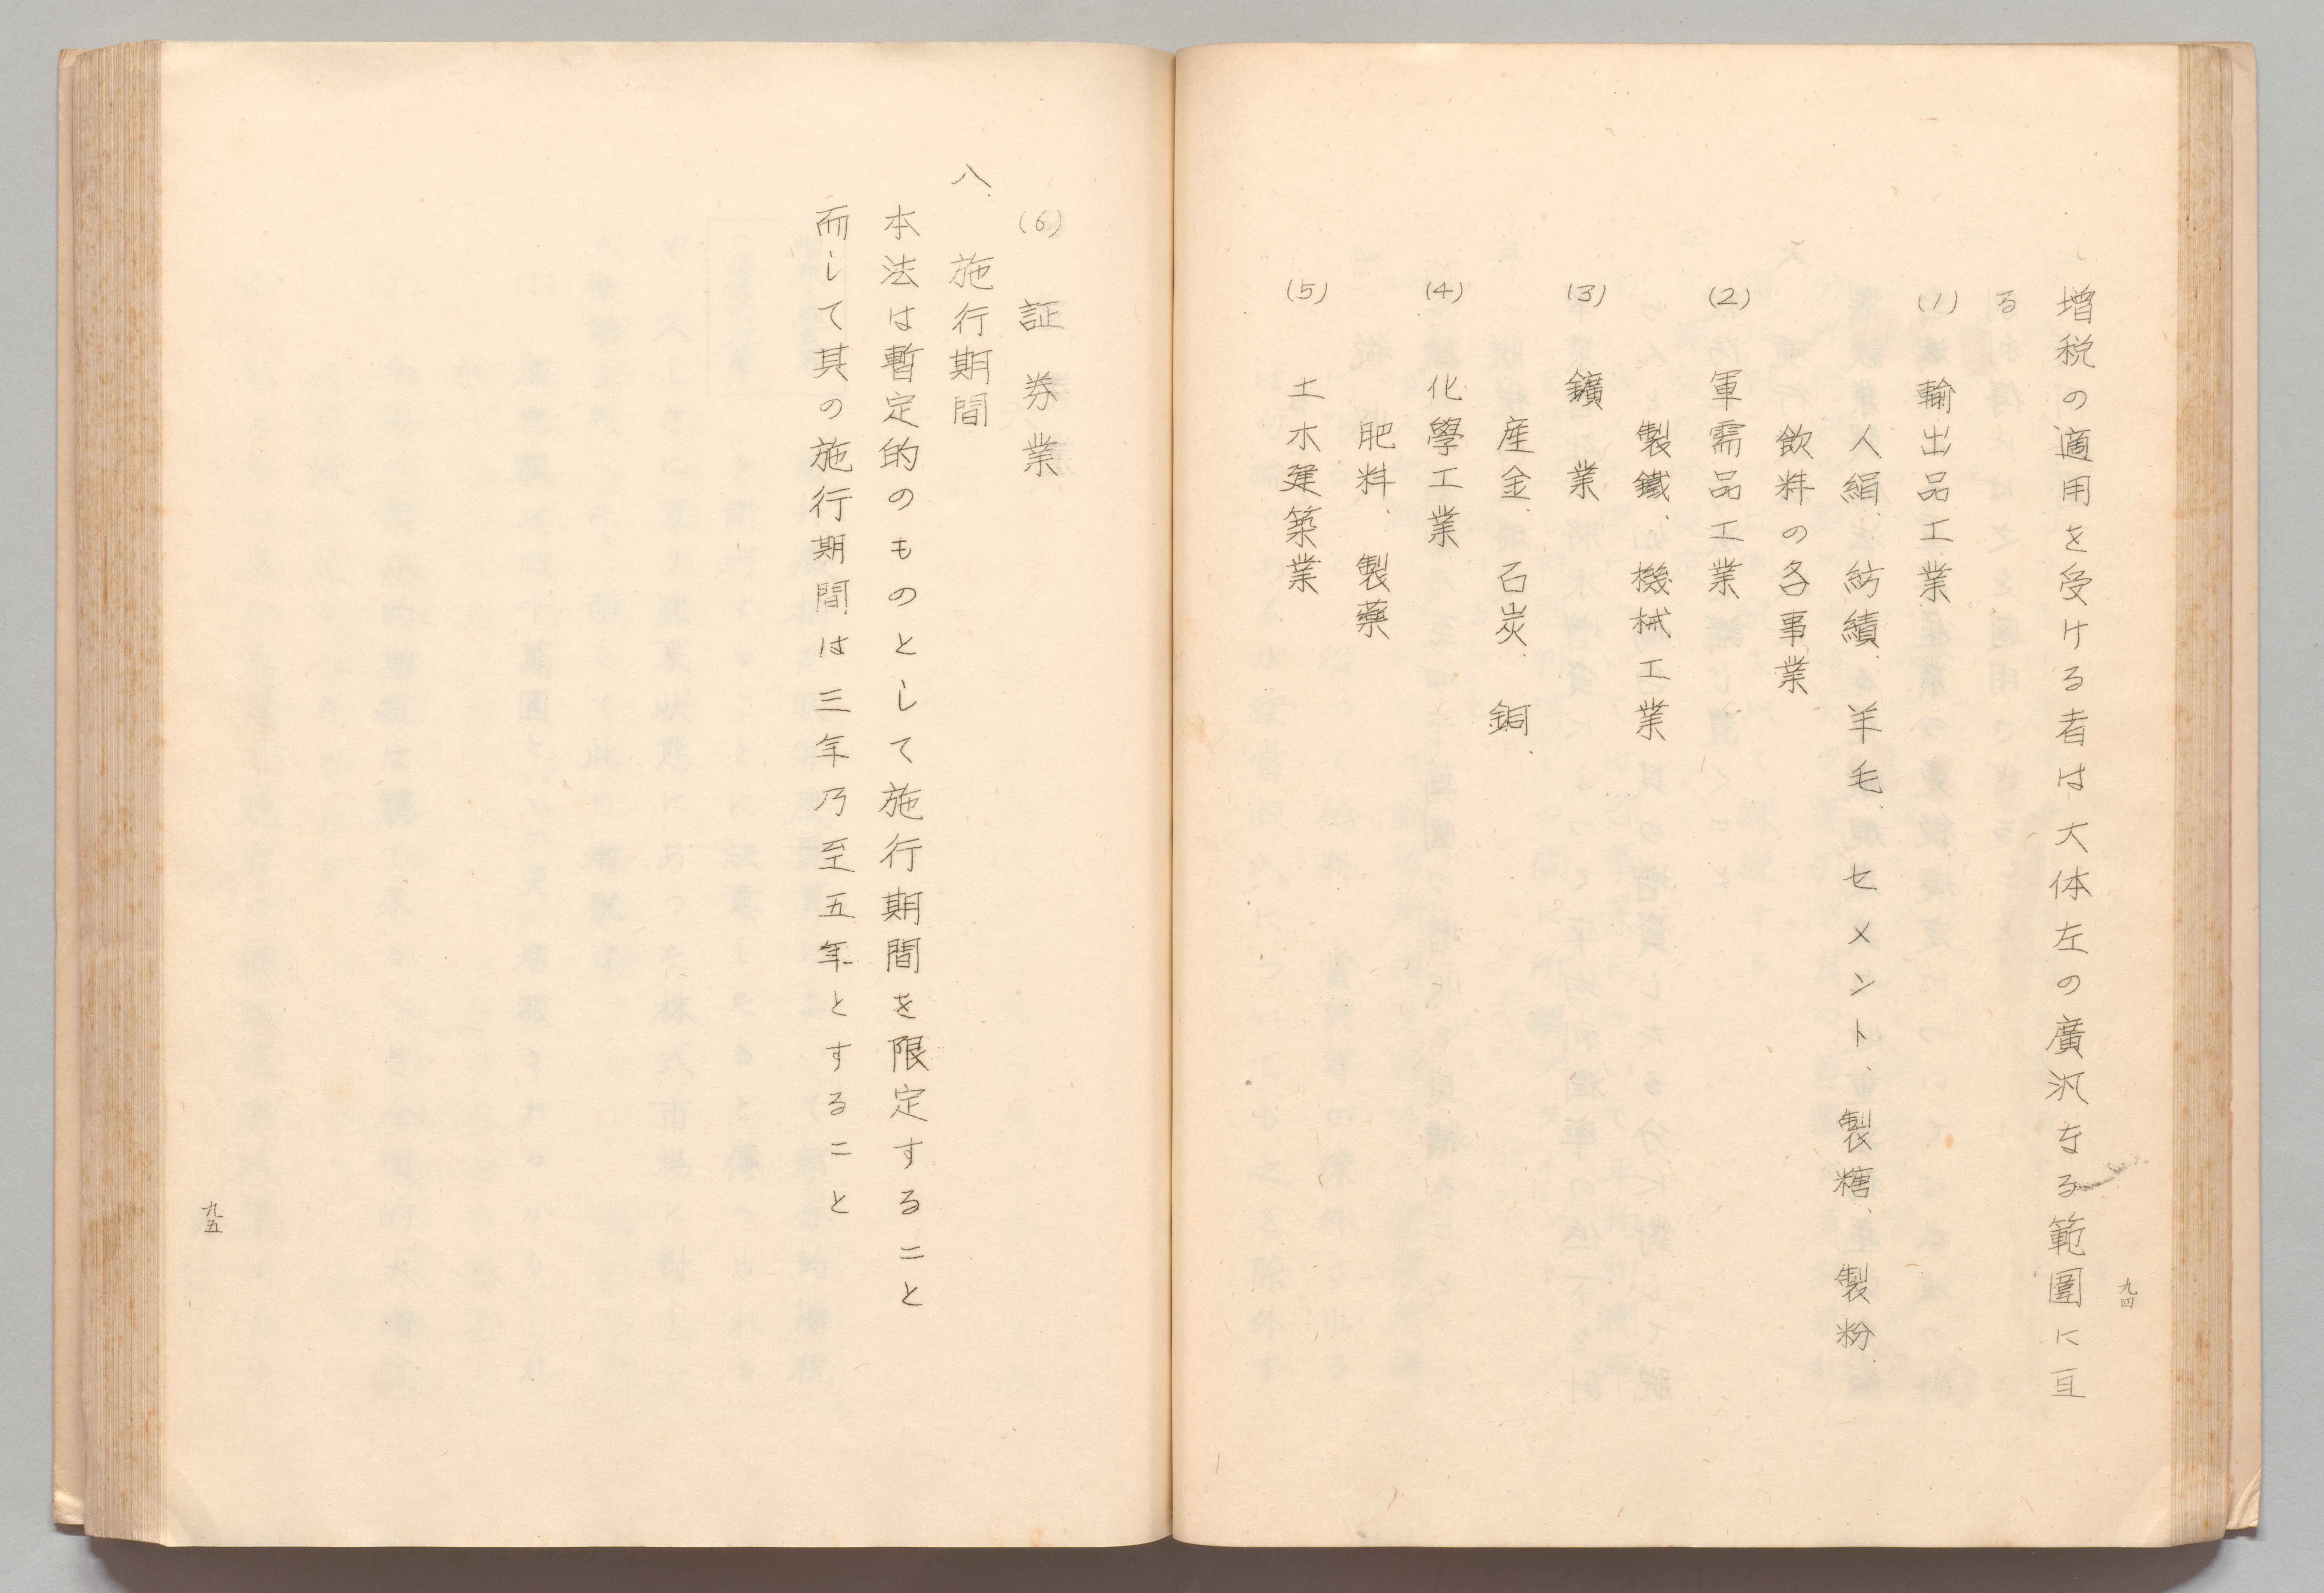 増税の適用を受ける者は大体左の廣汎なる範圍に亘
る
(1) 輸出品工業
人絹、紡績、羊毛、セメント、製糖、製粉、
飲料の各事業
(2) 軍需品工業
製鐵、機械工業
(3) 鑛業
産金、石炭、銅、
(4) 化學工業
肥料、製藥
(5) 土木建築業
九四
(6) 証券業
八、施行期間
本法は暫定的のものとして施行期間を限定すること
而して其の施行期間は三年乃至五年とすること
九五